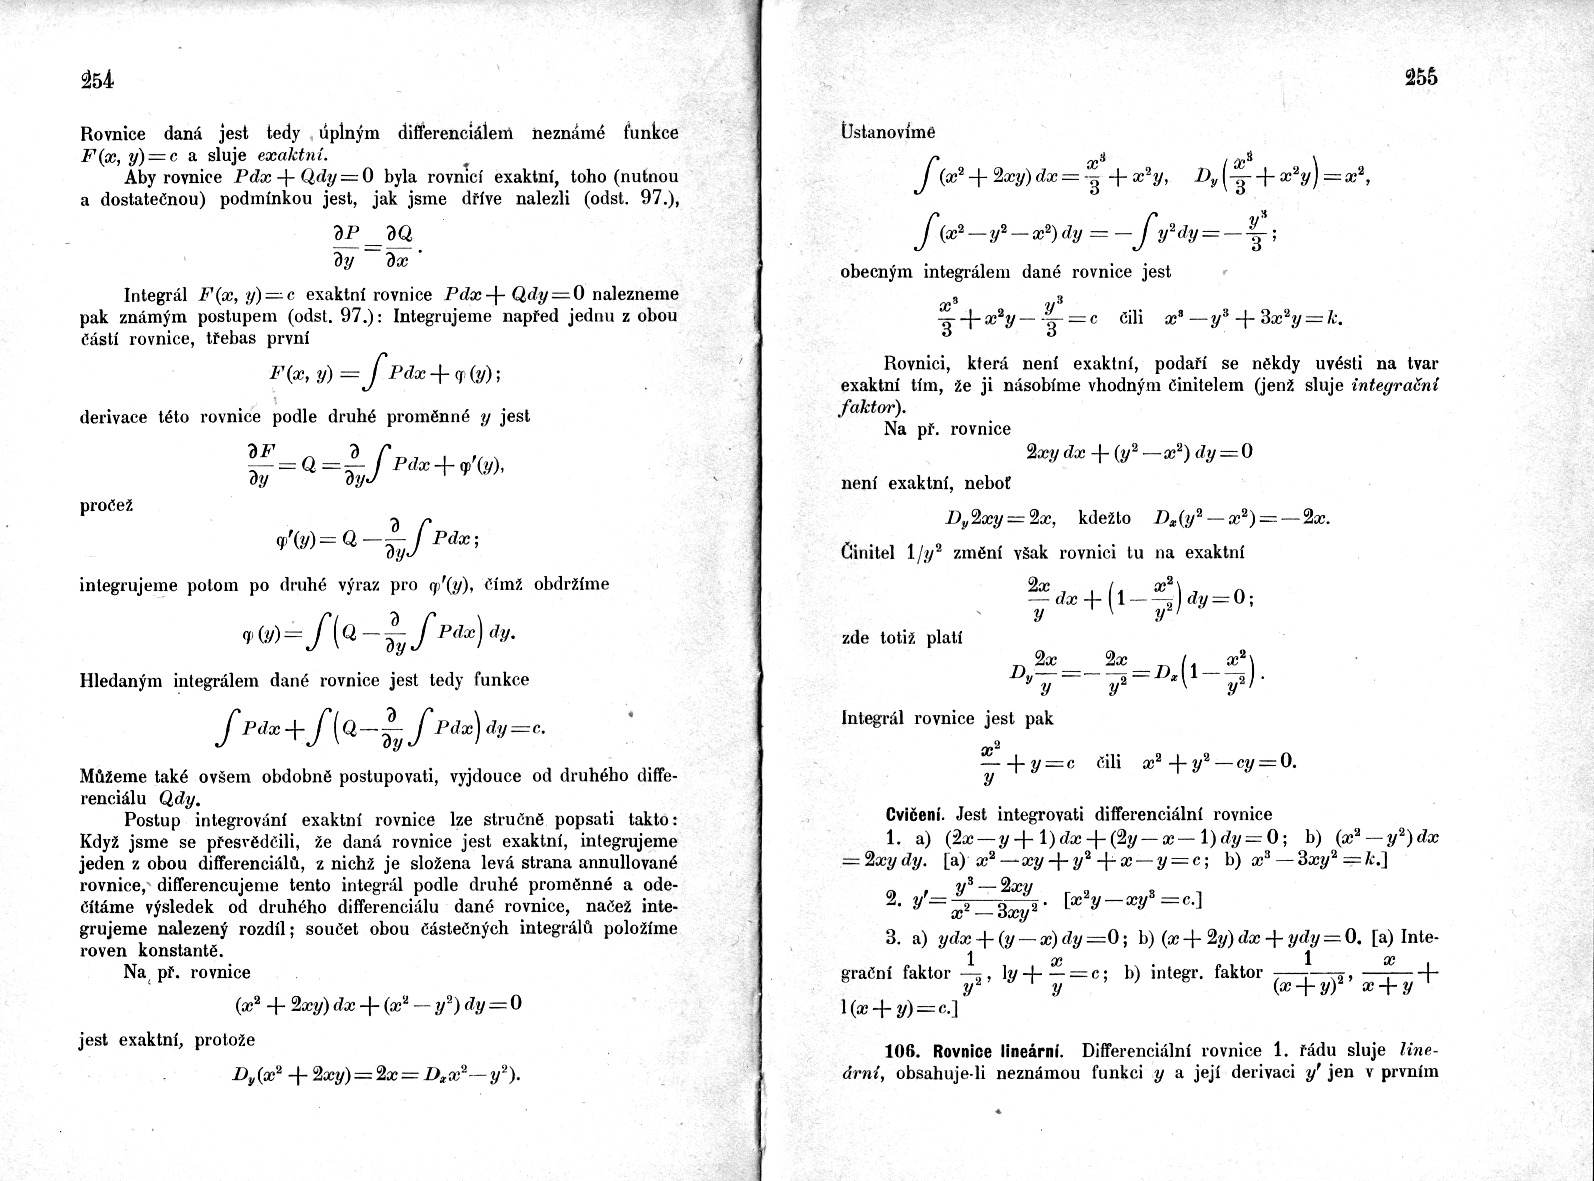 254
Rovnice daná jest tedy úplným differenciálem neznámé funkce
F(x, y) = c a sluje exaktní.
Aby rovnice Pdx + Qdy = 0 byla rovnicí exaktní, toho (nutnou
a dostatečnou) podmínkou jest, jak jsme dříve nalezli (odst. 97.),
∂P/∂y = ∂Q/∂x.
Integrál F(x, y) = c exaktní rovnice Pdx + Qdy = 0 nalezneme
pak známým postupem (odst. 97.): Integrujeme napřed jednu z obou
částí rovnice, třebas první
F(x, y) = ∫ Pdx + φ(y);
derivace této rovnice podle druhé proměnné y jest
∂F/∂y = Q = ∂/∂y ∫ Pdx + φ'(y),
pročež
φ'(y) = Q — ∂/∂y ∫ Pdx;
integrujeme potom po druhé výraz pro φ'(y), čímž obdržíme
φ(y) = ∫(Q — ∂/∂y ∫ Pdx) dy.
Hledaným integrálem dané rovnice jest tedy funkce
∫ Pdx + ∫(Q — ∂/∂y ∫ Pdx) dy = c.
Můžeme také ovšem obdobně postupovati, vyjdouce od druhého diffe-
renciálu Qdy.
Postup integrování exaktní rovnice lze stručně popsati takto:
Když jsme se přesvědčili, že daná rovnice jest exaktní, integrujeme
jeden z obou differenciálů, z nichž je složena levá strana annullované
rovnice, differencujeme tento integrál podle druhé proměnné a ode-
čítáme výsledek od druhého differenciálu dané rovnice, načež inte-
grujeme nalezený rozdíl; součet obou částečných integrálů položíme
roven konstantě.
Na př. rovnice
(x² + 2xy) dx + (x² — y²) dy = 0
jest exaktní, protože
D_y(x² + 2xy) = 2x = D_x x² — y²).
255
Ustanovíme
∫(x² + 2xy) dx = x³/3 + x²y, D_y(x³/3 + x²y) = x²,
∫(x² — y² — x²) dy = — ∫ y²dy = — y³/3;
obecným integrálem dané rovnice jest
x³/3 + x²y — y³/3 = c čili x³ — y³ + 3x²y = k.
Rovnici, která není exaktní, podaří se někdy uvésti na tvar
exaktní tím, že ji násobíme vhodným činitelem (jenž sluje integrační
faktor).
Na př. rovnice
2xy dx + (y² — x²) dy = 0
není exaktní, neboť
D_y 2xy = 2x, kdežto D_x(y² — x²) = — 2x.
Činitel 1/y² změní však rovnici tu na exaktní
2x/y dx + (1 — x²/y²) dy = 0;
zde totiž platí
D_y 2x/y = — 2x/y² = D_x(1 — x²/y²).
Integrál rovnice jest pak
x²/y + y = c čili x² + y² — cy = 0.
Cvičení. Jest integrovati differenciální rovnice
1. a) (2x — y + 1) dx + (2y — x — 1) dy = 0; b) (x² — y²) dx
= 2xy dy. [a) x² — xy + y² + x — y = c; b) x³ — 3xy² = k.]
2. y' = (y³ — 2xy)/(x² — 3xy²). [x²y — xy³ = c.]
3. a) ydx + (y — x) dy = 0; b) (x + 2y) dx + ydy = 0. [a) Inte-
grační faktor 1/y², ly + x/y = c; b) integr. faktor 1/(x + y)², x/(x + y) +
l(x + y) = c.]
106. Rovnice lineární. Differenciální rovnice 1. řádu sluje line-
ární, obsahuje-li neznámou funkci y a její derivaci y' jen v prvním